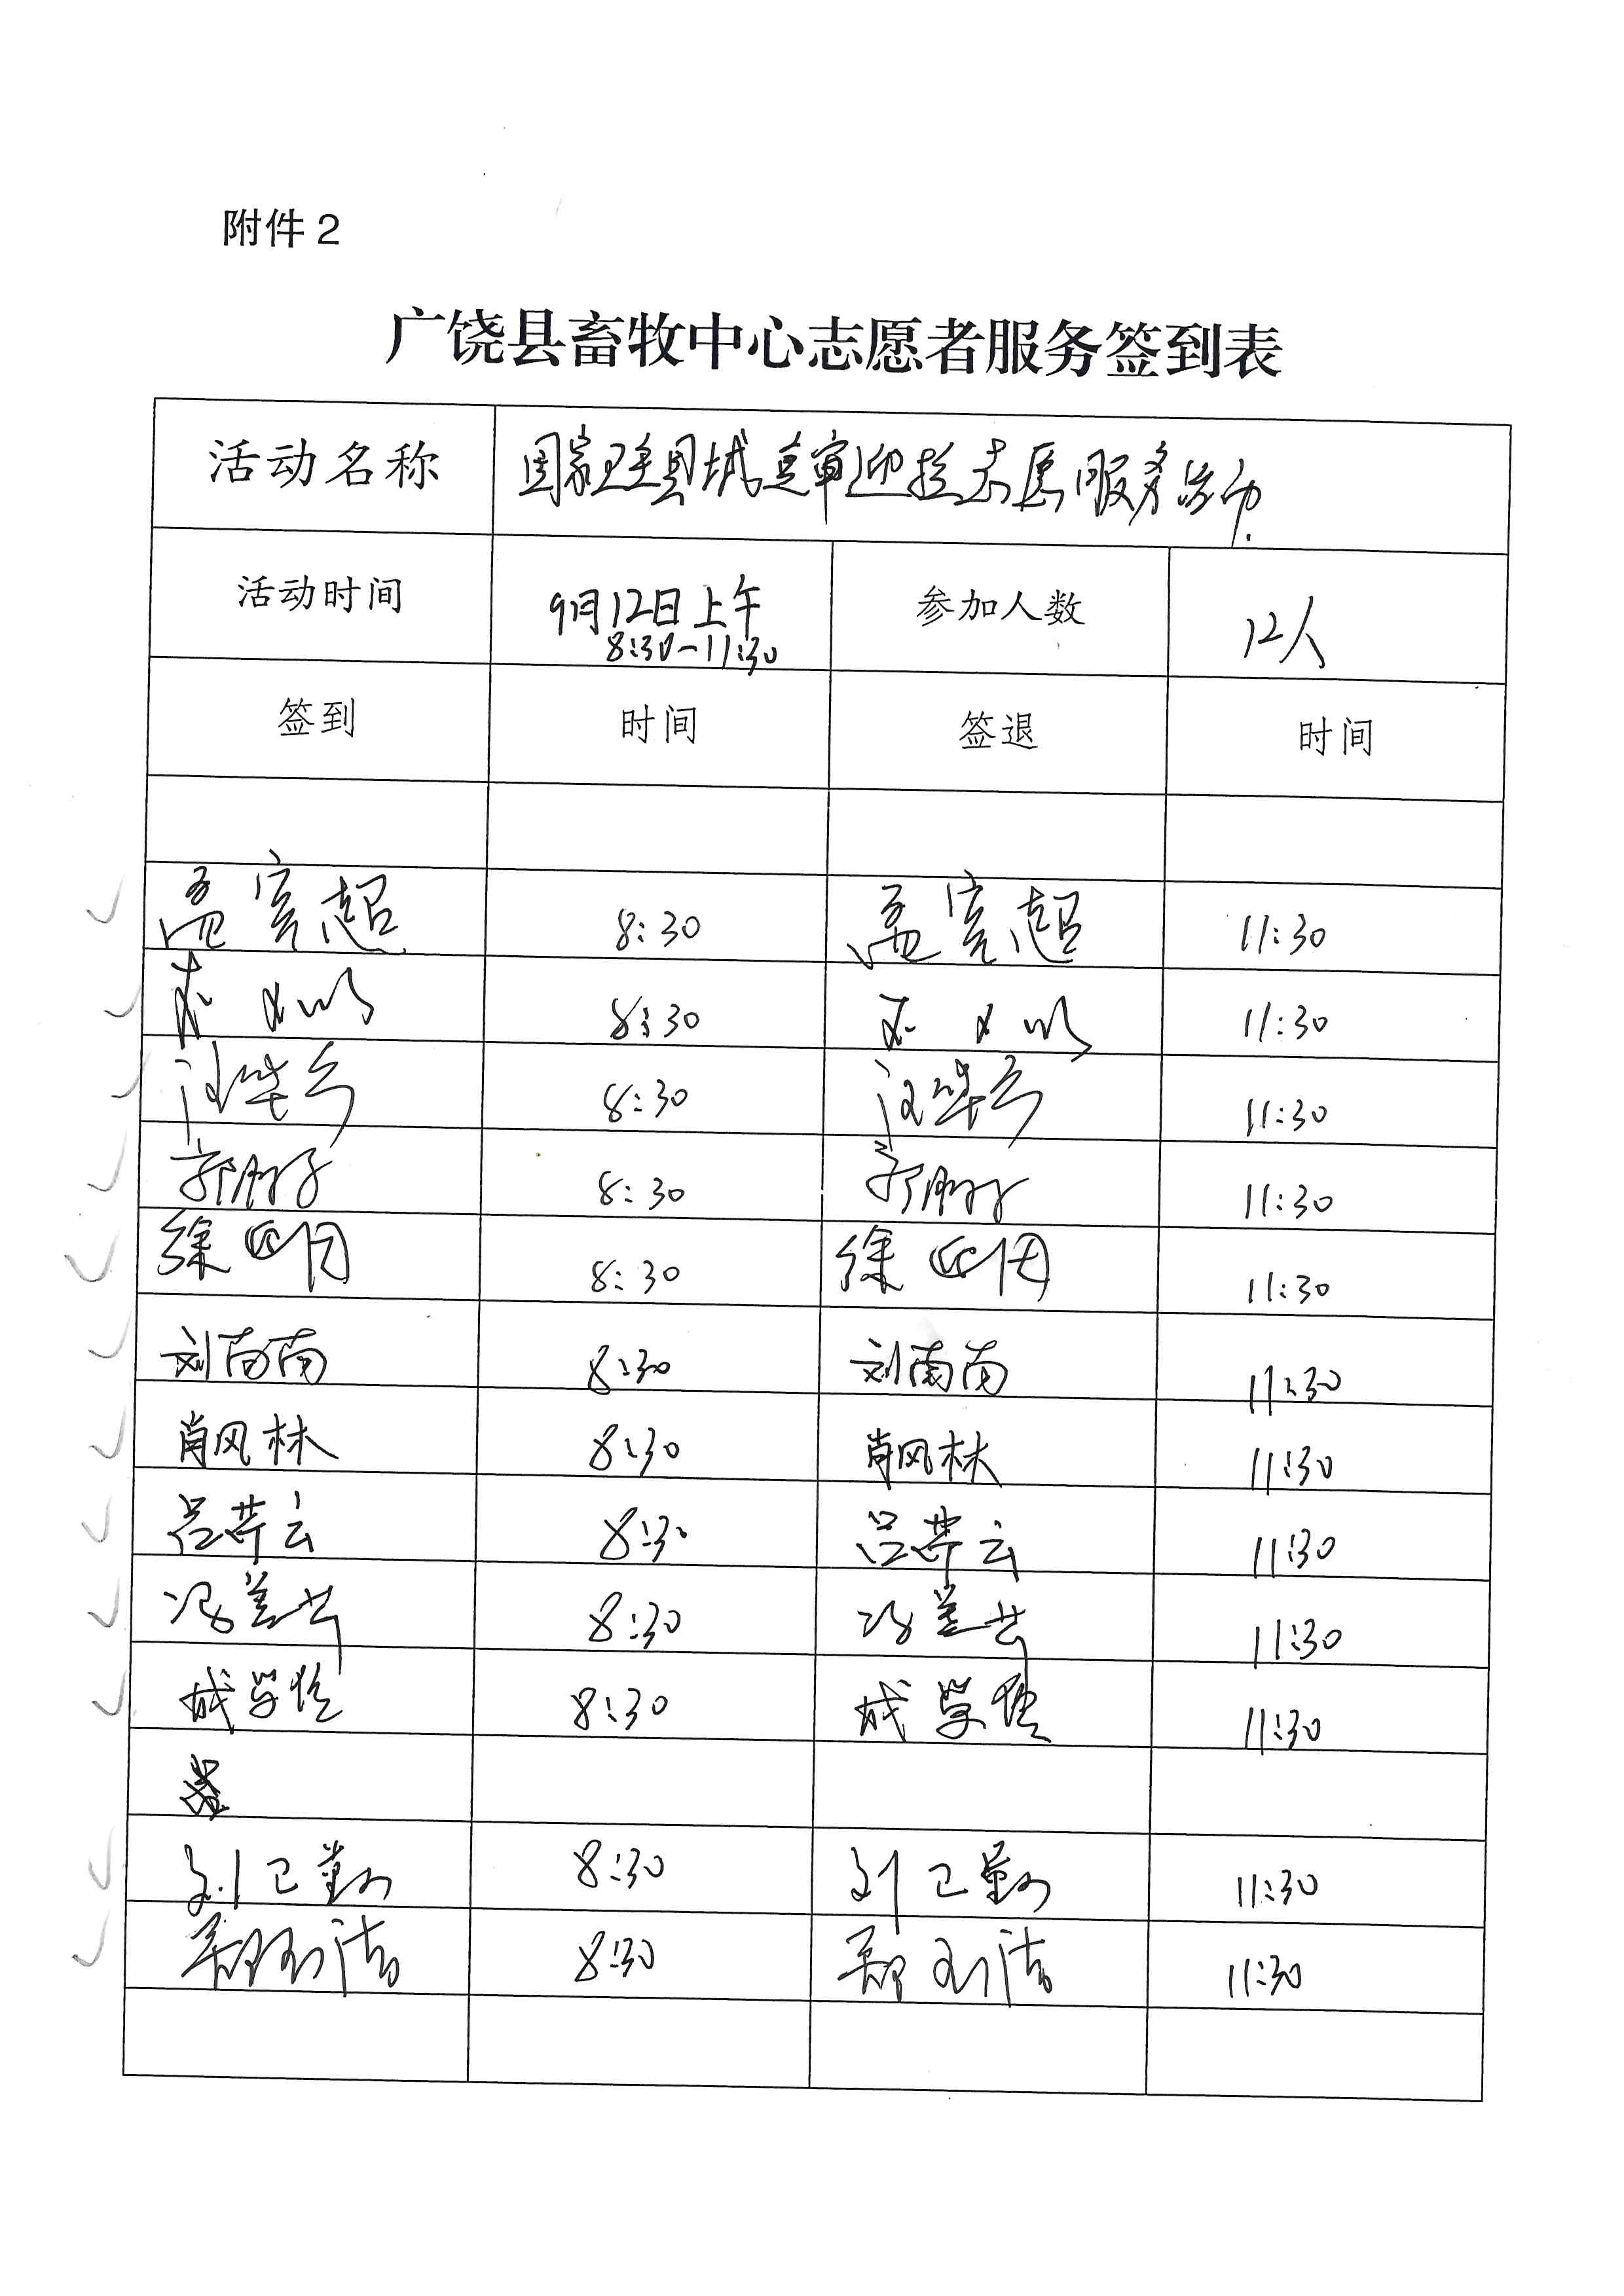 附件2
广饶县畜牧中心志愿者服务签到表
活动名称 国家卫生县城复审迎检志愿服务活动.
活动时间 9月12日上午 8:30-11:30 参加人数 12人
签到 时间 签退 时间
孟宪超 8:30 孟宪超 11:30
8:30 11:30
8:30 11:30
8:30 11:30
徐 8:30 徐 11:30
刘南南 8:30 刘南南 11:30
肖风林 8:30 肖风林 11:30
吕芹云 8:30 吕芹云 11:30
冯 8:30 冯 11:30
成学 8:30 成学 11:30
刘卫勤 8:30 刘卫勤 11:30
郑 洁 8:30 郑 洁 11:30